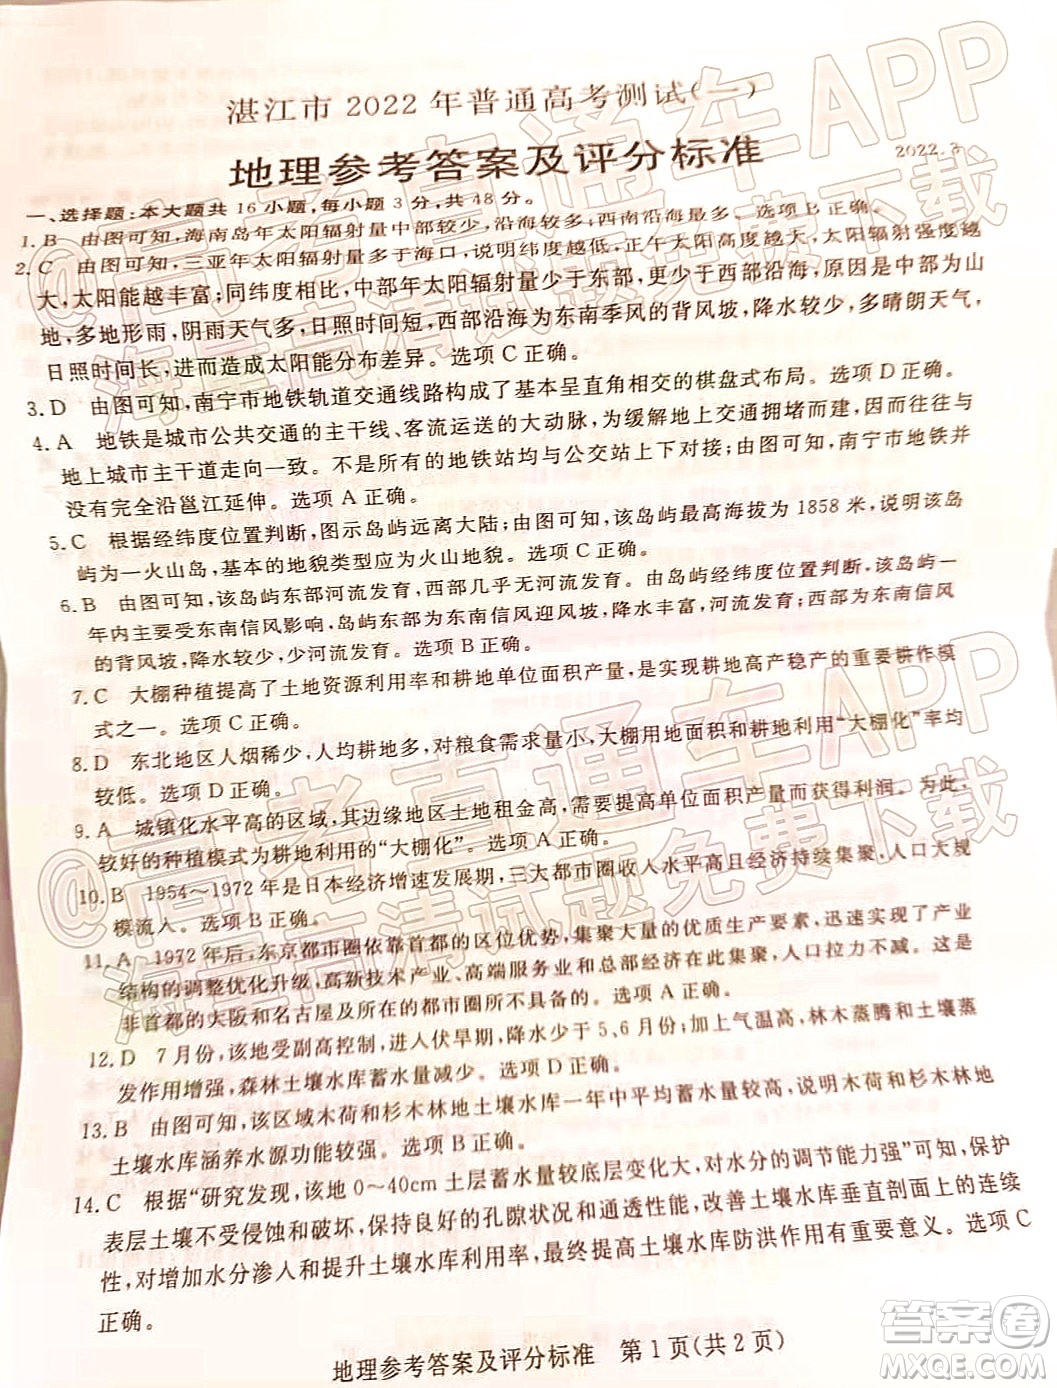 湛江市2022年普通高考测试(一)
地理参考答案及评分标准
2022.3
一、选择题:本大题共16小题,每小题3分,共48分。
1.B 由图可知,海南岛年太阳辐射量中部较少,沿海较多,西南沿海最多。选项B正确。
2.C 由图可知,三亚年太阳辐射量多于海口,说明纬度越低,正午太阳高度越大,太阳辐射强度越
大,太阳能越丰富;同纬度相比,中部年太阳辐射量少于东部,更少于西部沿海,原因是中部为山
地,多地形雨,阴雨天气多,日照时间短,西部沿海为东南季风的背风坡,降水较少,多晴朗天气,
日照时间长,进而造成太阳能分布差异。选项C正确。
3.D 由图可知,南宁市地铁轨道交通线路构成了基本呈直角相交的棋盘式布局。选项D正确。
4.A 地铁是城市公共交通的主干线、客流运送的大动脉,为缓解地上交通拥堵而建,大多与
地上城市主干道走向一致。不是所有的地铁站均与公交站上下对接;由图可知,南宁市地铁并
没有完全沿邕江延伸。选项A正确。
5.C 根据经纬度位置判断,图示岛屿远离大陆;由图可知,该岛屿最高海拔为1858米,说明该岛
屿为一火山岛,基本的地貌类型应为火山地貌。选项C正确。
6.B 由图可知,该岛屿东部河流发育,西部几乎无河流发育。由岛屿经纬度位置判断,该岛屿一
年内主要受东南信风影响,岛屿东部为东南信风迎风坡,降水丰富,河流发育;西部为东南信风
的背风坡,降水较少,少河流发育。选项B正确。
7.C 大棚种植提高了土地资源利用率和土地单位面积产量,是实现耕地高产稳产的重要耕作模
式之一。选项C正确。
8.D 东北地区人烟稀少,人均耕地多,对粮食需求量小,大棚用地面积和耕地利用“大棚化”率均
较低。选项D正确。
9.A 城镇化水平高的区域,其边缘地区土地租金高,需要提高单位产量而获得利润。为此,
较好的种植模式为耕地利用的“大棚化”。选项A正确。
10.B 1954～1972年是日本经济增速发展期,三大都市圈收入水平高且经济持续集聚,人口大规
模流入。选项B正确。
11.A 1972年后,东京都市圈依靠首都的区位优势,集聚大量的优质生产要素,迅速实现了产业
结构的调整优化升级,高新技术产业、高端服务业和总部经济在此集聚,人口拉力不减。这是
非首都的大阪和名古屋及所在的都市圈所不具备的。选项A正确。
12.D 7月份,该地受副高控制,进入伏旱期,降水少于5、6月份;加上气温高,林木蒸腾和土壤蒸
发作用增强,森林土壤水库蓄水量减少。选项D正确。
13.B 由图可知,该区域木荷和杉木林地土壤水库一年中平均蓄水量较高,说明木荷和杉木林地
土壤水库涵养水源功能较强。选项B正确。
14.C 根据“研究发现,该地0～40cm土层蓄水量较底层变化大,对水分的调节能力强”可知,保护
表层土壤不受侵蚀和破坏,保持良好的孔隙状况和通透性能,改善土壤水库垂直剖面上的连续
性,对增加水分渗入和提升土壤水库利用率,最终提高土壤水库防洪作用有重要意义。选项C
正确。
地理参考答案及评分标准 第1页(共2页)
@高考直通车APP
海量高清试题免费下载
@高考直通车APP
海量高清试题免费下载
答案圈
MXQE.COM